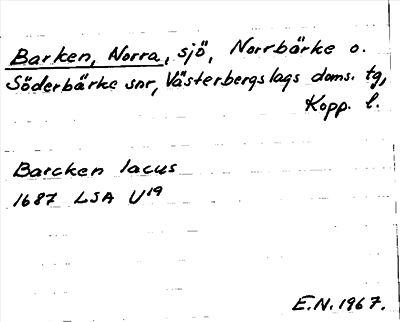 Barken, Norra, sjö, Norrbärke o.
Söderbärke snr, Västerbergslags doms. tg,
Kopp. l.
Barcken lacus
1687 LSA U19
E.N. 1967.